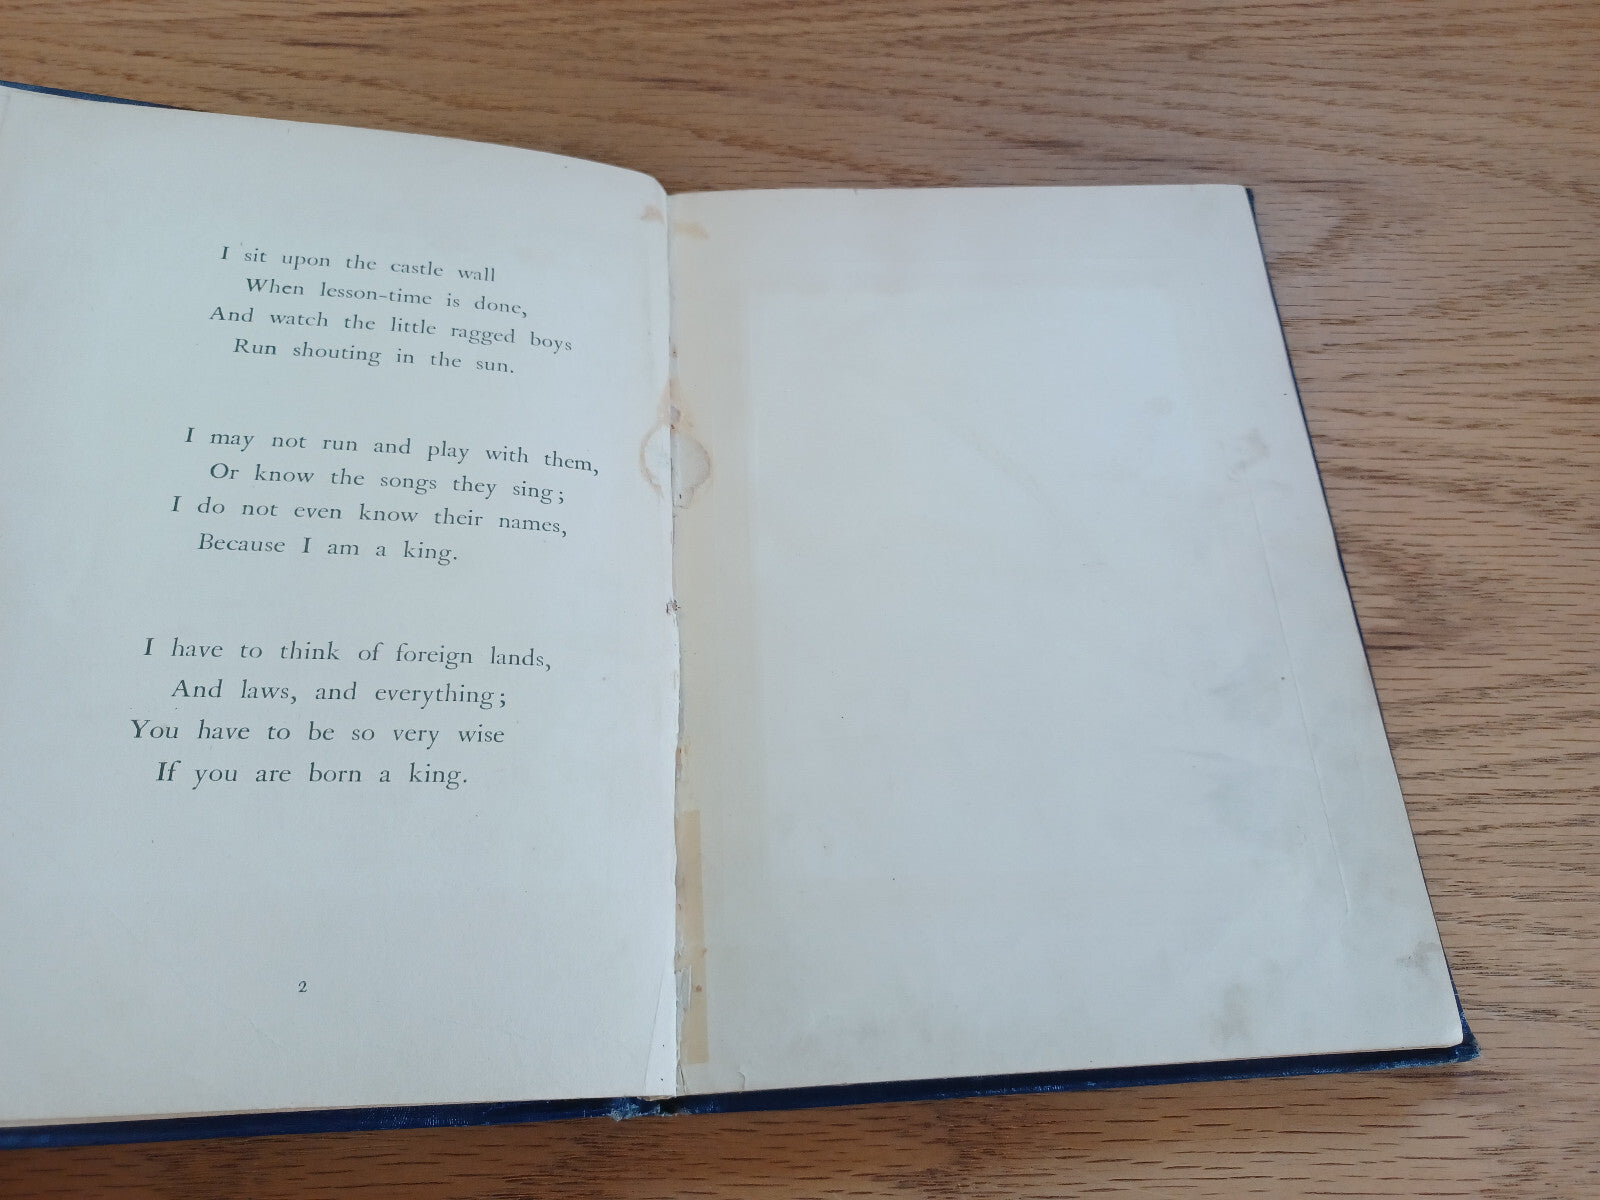 I sit upon the castle wall
When lesson-time is done,
And watch the little ragged boys
Run shouting in the sun.
I may not run and play with them,
Or know the songs they sing;
I do not even know their names,
Because I am a king.
I have to think of foreign lands,
And laws, and everything;
You have to be so very wise
If you are born a king.
2